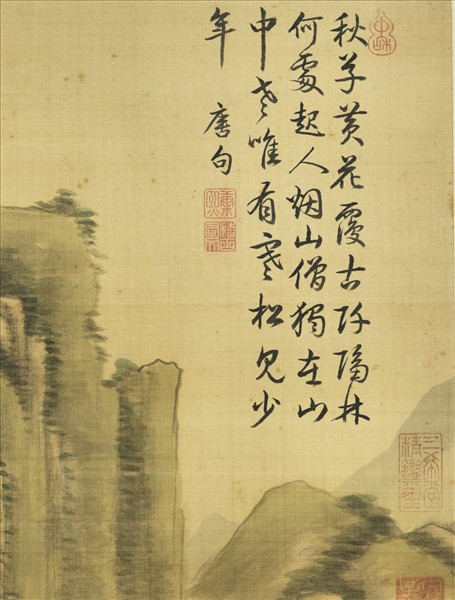 秋草黄花覆古阡隔林
何處起人烟山僧獨在山
中老唯有寒松見少
年 唐句
三希堂
精鑑璽